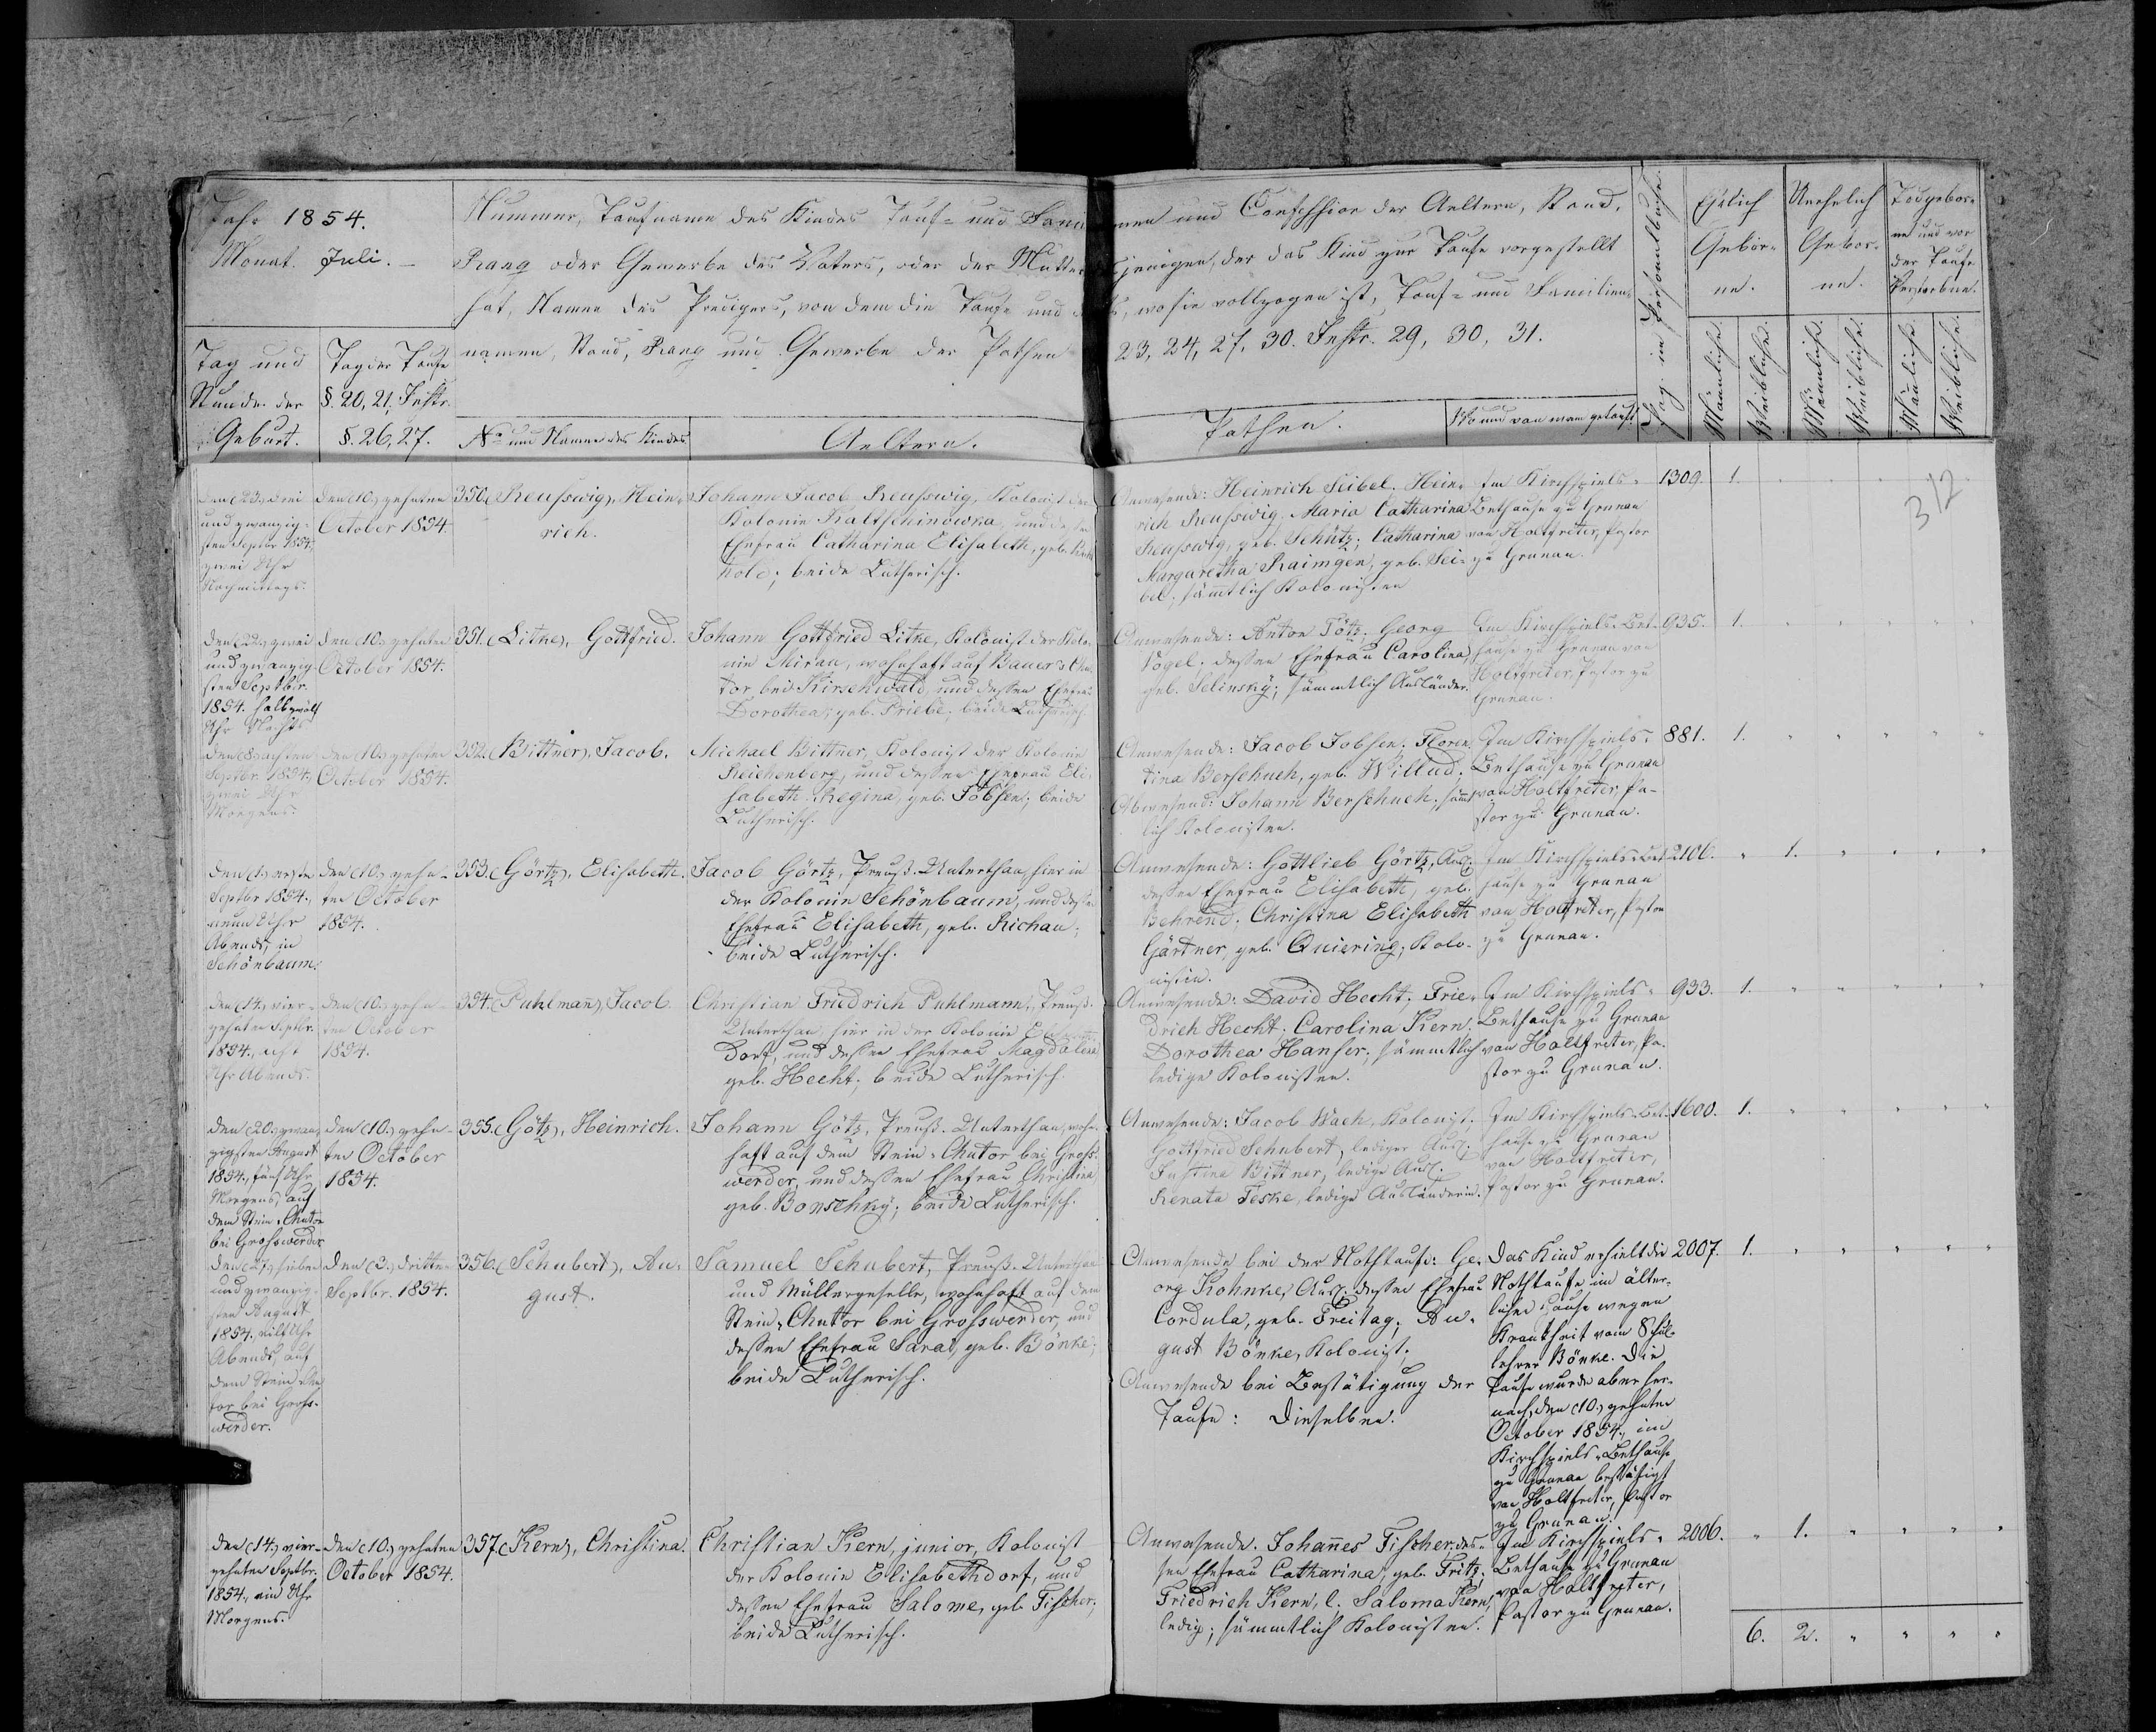 Jahr 1854.
Monat. Juli. —
Nummer, Taufname des Kindes Tauf- und Fami
men und Confession der Aeltern, Stand,
Rang oder Gewerbe des Vaters, oder der Mutter
jenigen, der das Kind zur Taufe vorgestellt
hat, Namen des Predigers, von dem die Taufe und
wo sie vollzogen ist, Tauf- und Familien-
namen, Stand, Rang und Gewerbe der Pathen
23, 24, 27, 30. Instr. 29, 30, 31.
Tag und
Stunde der
Geburt.
Tag der Taufe
§. 20, 21. Instr.
§. 26, 27.
No und Name des Kindes
Aeltern.
Pathen.
Wo und von wem getauft.
Pag. im Personalbuche.
Ehelich
Gebor-
ne.
Unehelich
Gebor-
ne.
Todgebor-
ne und vor
der Taufe
Verstorbene.
Männliche.
Weibliche.
Männliche.
Weibliche.
Männliche.
Weibliche.
312
den (23.) drei
und zwanzig-
sten Septbr 1854.,
zwei Uhr
Nachmittags.
den (10.) zehnten
October 1854.
350. (Reusswig), Hein-
rich.
Johann Jacob Reusswig, Kolonist der
Kolonie Kaltschinowka, und dessen
Ehefrau Catharina Elisabeth, geb.
beide Lutherisch.
Anwesende: Heinrich Seibel. Hein-
rich Reusswig. Maria Catharina
Reusswig, geb. Schütz; Catharina
Margaretha Raimgen, geb. Sei-
bel; sämtlich Kolonisten
Im Kirchspiels-
Bethause zu Grunau
von Holtfreter, Pastor
zu Grunau.
1309. 1.
den (22.) zwei
und zwanzig-
sten Septbr.
1854. halb zwölf
Uhr Nachts.
den (10.) zehnten
October 1854.
351. (Litke), Gottfried.
Johann Gottfried Litke, Kolonist der Kolo-
nie Mirau, wohnhaft auf Bauer's Chu-
tor bei Kirschwald, und dessen Ehefrau
Dorothea, geb. Priebe; beide Lutherisch
Anwesende: Anton Götz; Georg
Vogel. dessen Ehefrau Carolina,
geb. Selinsky; sämmtlich Ausländer.
Im Kirchspiels-Bet-
hause zu Grunau von
Holtfreter, Pastor zu
Grunau.
935. 1.
den (8.) achten
Septbr. 1854.,
zwei Uhr
Morgens.
den (10.) zehnten
October 1854.
352. (Bittner), Jacob.
Michael Bittner, Kolonist der Kolonie
Reichenberg, und dessen Ehefrau Eli-
sabeth Regina, geb. Jobsen; beide
Lutherisch.
Anwesende: Jacob Jobsen; Floren-
tina Berschuch, geb. Willud.
Abwesend: Johann Berschuch; sämt-
lich Kolonisten.
Im Kirchspiels-
Bethause zu Grunau
von Holtfreter, Pa-
stor zu Grunau.
881. 1.
den (1.) ersten
Septbr 1854.,
neun Uhr
Abends, in
Schönbaum.
den (10.) zehn-
ten October
1854.
353. (Görtz), Elisabeth.
Jacob Görtz, Preuß. Unterthan, hier in
der Kolonie Schönbaum, und dessen
Ehefrau Elisabeth, geb. Richau;
beide Lutherisch.
Anwesende: Gottlieb Görtz, Ausl;
dessen Ehefrau Elisabeth, geb.
Behrend; Christina Elisabeth
Gärtner, geb. Quiering, Kolo-
nistin.
Im Kirchspiels-Bet-
hause zu Grunau
von Holtfreter, Pastor
zu Grunau.
2106. 1.
den (14.) vier-
zehnten Septbr.
1854., acht
Uhr Abends.
den (10.) zehn-
ten October
1854.
354. (Puhlmann), Jacob.
Christian Friedrich Puhlmann, Preuß.
Unterthan, hier in der Kolonie
dorf, und dessen Ehefrau Magdalena
geb. Hecht; beide Lutherisch.
Anwesende: David Hecht; Frie-
drich Hecht. Carolina Kern.
Dorothea Hanser; sämmtlich
ledige Kolonisten.
Im Kirchspiels-
Bethause zu Grunau
von Holtfreter, Pa-
stor zu Grunau.
933. 1.
den (20.) zwan-
zigsten August
1854., fünf Uhr
Morgens, auf
dem Stein-Chutor
bei Grosswerder
den (10.) zehn-
ten October
1854.
355. (Götz), Heinrich.
Johann Götz, Preuß. Unterthan, wohn-
haft auf dem Stein-Chutor bei Gross-
werder, und dessen Ehefrau Christina
geb. Bonschky; beide Lutherisch.
Anwesende: Jacob Wach, Kolonist;
Gottfried Schubert, lediger Ausl.
Justina Bittner, ledige Ausl.
Renata Teske, ledige Ausländerin.
Im Kirchspiels-Bet-
hause zu Grunau
von Holtfreter,
Pastor zu Grunau.
1600. 1.
den (27.) sieben
und zwanzig-
sten August
1854., eilf Uhr
Abends, auf
dem Stein-Chu-
tor bei Gross-
werder.
den (3.) dritten
Septbr. 1854.
356. (Schubert), Au-
gust.
Samuel Schubert, Preuß. Unterthan
und Müllergeselle, wohnhaft auf dem
Stein-Chutor bei Grosswerder, und
dessen Ehefrau Sara, geb. Bönke;
beide Lutherisch.
Anwesende bei der Nothtaufe: Ge-
org Kohnke, Ausl. dessen Ehefrau
Cordula, geb. Freitag; Au-
gust Bönke, Kolonist.
Anwesende bei Bestätigung der
Taufe: Dieselben.
Das Kind erhielt die
Nothtaufe im älter-
lichen Hause wegen
Krankheit vom Schul-
lehrer Bönke. Die
Taufe wurde aber her-
nach, den (10.) zehnten
October 1854., im
Kirchspiels-Bethause
zu Grunau bestätigt
von Holtfreter, Pastor
zu Grunau.
2007. 1.
den (14.) vier-
zehnten Septbr.
1854., ein Uhr
Morgens.
den (10.) zehnten
October 1854.
357. (Kern), Christina.
Christian Kern, junior, Kolonist
der Kolonie Elisabethdorf, und
dessen Ehefrau Salome, geb. Fischer;
beide Lutherisch.
Anwesende. Johannes Fischer. des-
sen Ehefrau Catharina, geb. Fritz;
Friedrich Kern, l. Saloma Kern,
ledig; sämmtlich Kolonisten.
Im Kirchspiels-
Bethause zu Grunau
von Holtfreter,
Pastor zu Grunau.
2006. 1.
6. 2.